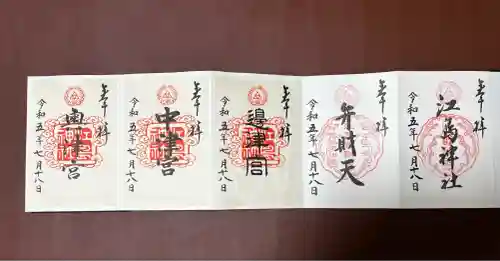 奉拝
江島神社
令和五年七月十八日
奉拝
弁財天
令和五年七月十八日
奉拝
邊津宮
令和五年七月十八日
奉拝
中津宮
令和五年七月十八日
奉拝
奥津宮
令和五年七月十八日